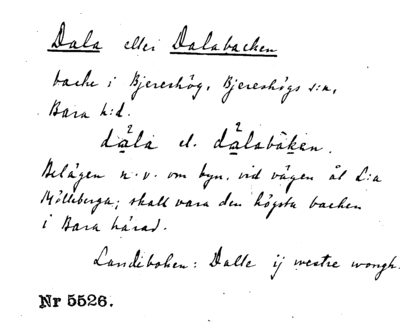 Dala eller Dalabacken
backe i Bjereshög, Bjereshögs s:n,
Bara h:d.
dala el. dalabäken.
Belägen n.v. om byn, vid vägen åt L:a
Mölleberga; skall vara den högsta backen
i Bara härad.
Landeboken: Dalle ij westre wongh.
Nr 5526.